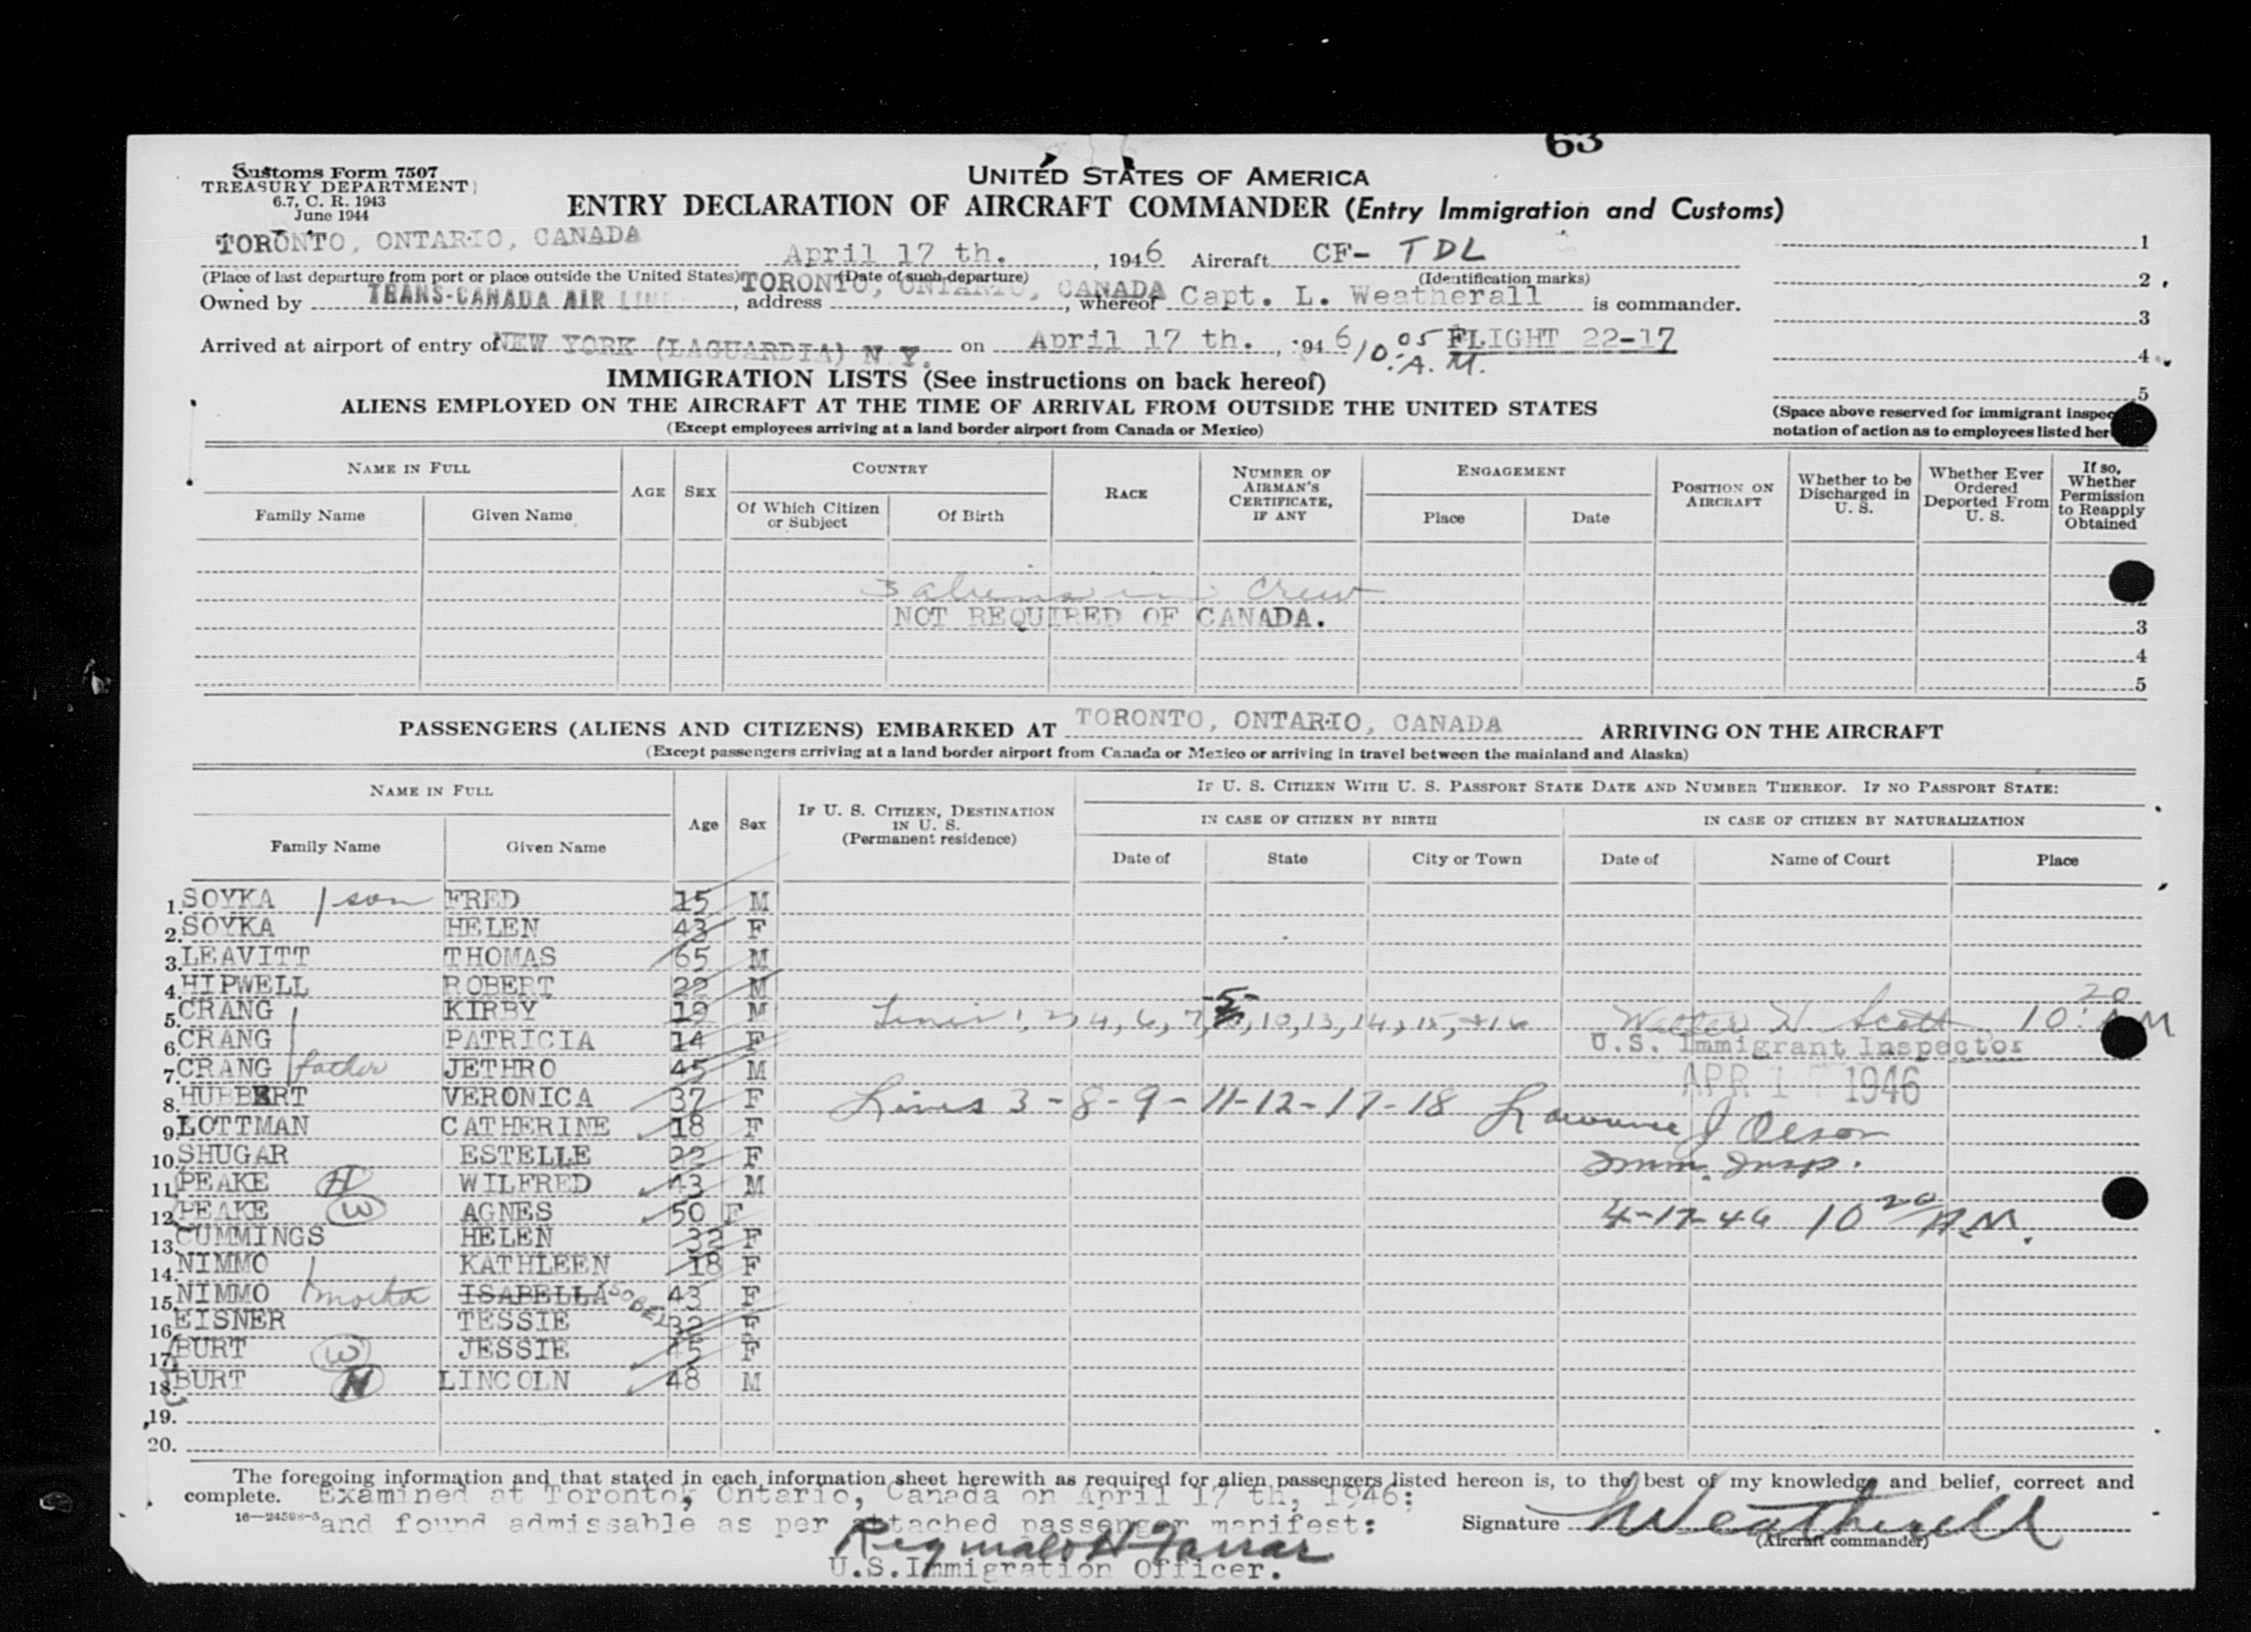 63
Customs Form 7507
TREASURY DEPARTMENT
6.7, C. R. 1943
June 1944
UNITED STATES OF AMERICA
ENTRY DECLARATION OF AIRCRAFT COMMANDER (Entry Immigration and Customs)
TORONTO, ONTARIO, CANADA April 17 th. , 1946 Aircraft CF- TDL 1
(Place of last departure from port or place outside the United States) (Date of such departure) (Identification marks) 2
Owned by TRANS-CANADA AIR LINES , address TORONTO, ONTARIO, CANADA , whereof Capt. L. Weatherall is commander. 3
Arrived at airport of entry of NEW YORK (LAGUARDIA) N.Y. on April 17 th. , 1946 10:05 A.M. FLIGHT 22-17 4
IMMIGRATION LISTS (See instructions on back hereof) 5
ALIENS EMPLOYED ON THE AIRCRAFT AT THE TIME OF ARRIVAL FROM OUTSIDE THE UNITED STATES
(Except employees arriving at a land border airport from Canada or Mexico)
(Space above reserved for immigrant inspec
notation of action as to employees listed her
NAME IN FULL AGE SEX COUNTRY RACE NUMBER OF AIRMAN'S CERTIFICATE, IF ANY ENGAGEMENT POSITION ON AIRCRAFT Whether to be Discharged in U. S. Whether Ever Ordered Deported From U. S. If so, Whether Permission to Reapply Obtained
Family Name Given Name Of Which Citizen or Subject Of Birth Place Date
3 aliens in crew
NOT REQUIRED OF CANADA. 3
4
5
PASSENGERS (ALIENS AND CITIZENS) EMBARKED AT TORONTO, ONTARIO, CANADA ARRIVING ON THE AIRCRAFT
(Except passengers arriving at a land border airport from Canada or Mexico or arriving in travel between the mainland and Alaska)
NAME IN FULL Age Sex IF U. S. CITIZEN, DESTINATION IN U. S. (Permanent residence) IF U. S. CITIZEN WITH U. S. PASSPORT STATE DATE AND NUMBER THEREOF. IF NO PASSPORT STATE:
IN CASE OF CITIZEN BY BIRTH IN CASE OF CITIZEN BY NATURALIZATION
Family Name Given Name Date of State City or Town Date of Name of Court Place
1. SOYKA son FRED 15 M
2. SOYKA HELEN 43 F
3. LEAVITT THOMAS 65 M
4. HIPWELL ROBERT 22 M
5. CRANG KIRBY 19 M Lines 1, 2, 4, 6, 7, 5, 10, 13, 14, 15, +16 Walter H. Scott 10:20 AM
6. CRANG PATRICIA 14 F U.S. Immigrant Inspector
7. CRANG father JETHRO 45 M APR 17 1946
8. HUBBERT VERONICA 37 F Lines 3-8-9-11-12-17-18 Lawrence J Olson
9. LOTTMAN CATHERINE 18 F
10. SHUGAR ESTELLE 22 F Imm. Insp.
11. PEAKE H WILFRED 43 M
12. PEAKE W AGNES 50 F 4-17-46 10 20 A.M.
13. CUMMINGS HELEN 32 F
14. NIMMO KATHLEEN 18 F
15. NIMMO mother ISABELLA ISOBEL 43 F
16. EISNER TESSIE 32 F
17. BURT W JESSIE 45 F
18. BURT H LINCOLN 48 M
19.
20.
The foregoing information and that stated in each information sheet herewith as required for alien passengers listed hereon is, to the best of my knowledge and belief, correct and
complete. Examined at Toronto, Ontario, Canada on April 17 th, 1946:
and found admissable as per attached passenger manifest: Signature Weatherall
Reginald H Farrar (Aircraft commander)
U.S.Immigration Officer.